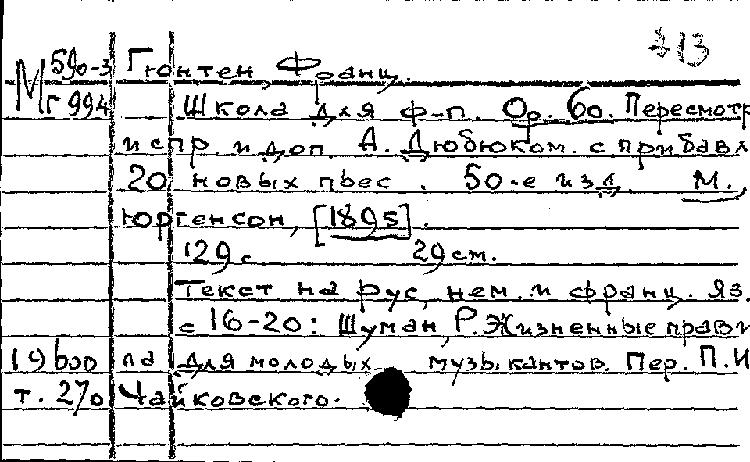 313
М 590-3 Гюнтен, Франц.
г 994 Школа для ф-п. Op. 60. Пересмотр
испр. и доп. А. Дюбюком. с прибавл
20 новых пьес. 50-е изд. М.,
Юргенсон, [1895].
129 с. 29 см.
Текст на рус, нем. и франц. яз.
с 16-20: Шуман, Р. Жизненные прави
ла для молодых музыкантов. Пер. П. И
т. 270 Чайковского.